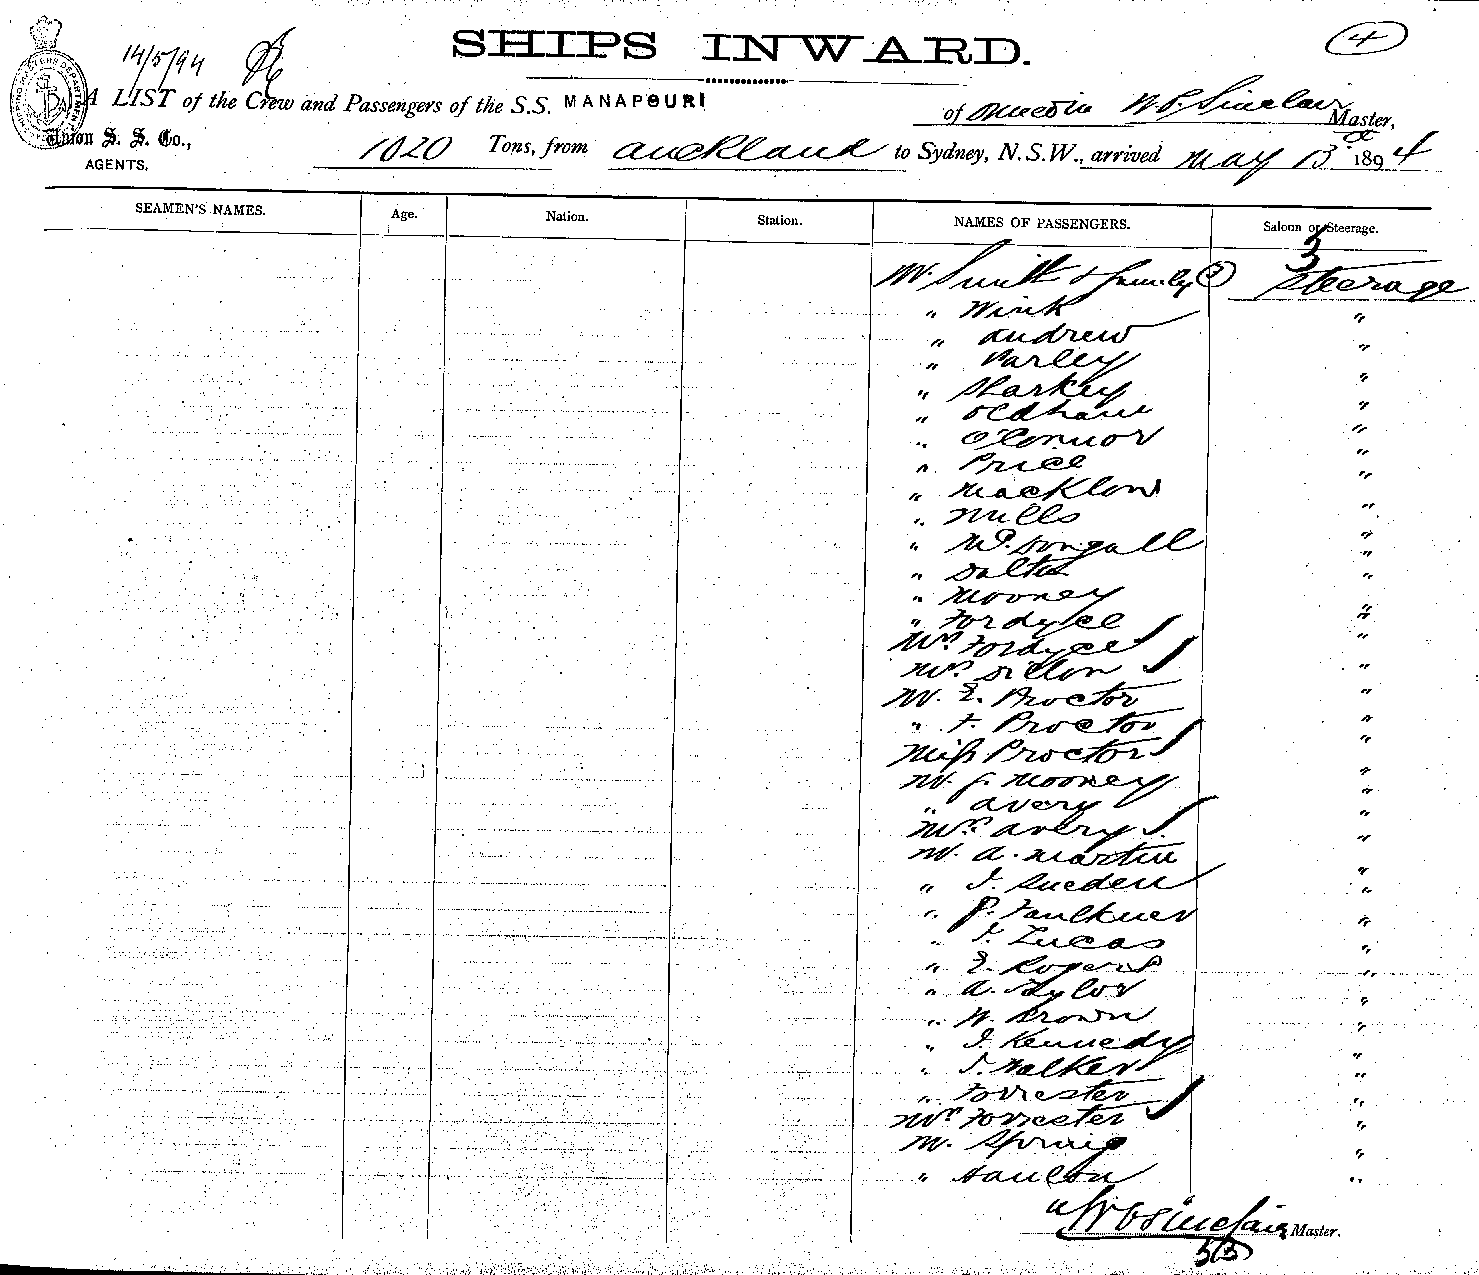 14/5/94
SHIPS INWARD.
4
A LIST of the Crew and Passengers of the S.S. MANAPOURI of Dunedin W. P. Sinclair Master,
Union S. S. Co., AGENTS. 1020 Tons, from Auckland to Sydney, N.S.W., arrived May 13 1894
SEAMEN'S NAMES. Age. Nation. Station. NAMES OF PASSENGERS. Saloon or Steerage.
Mr. Smith & family Steerage
" Wink "
" Andrew "
" Varley "
" Sharkey "
" Oldham "
" O'Connor "
" Price "
" Macklow "
" Mills "
" McDougall "
" Salter "
" Mooney "
" Fordyce "
Mrs Fordyce "
Mrs Dillon "
Mr. E. Proctor "
" F. Proctor "
Miss Proctor "
Mr. J. Mooney "
" Avery "
Mrs Avery "
Mr. A. Martin "
" J. "
" P. Faulkner "
" J. Lucas "
" E. Rogers "
" A. Taylor "
" W. Brown "
" J. Kennedy "
" J. Walker "
" Forrester "
Mrs Forrester "
Mr. "
" Hanlon "
W P Sinclair Master.